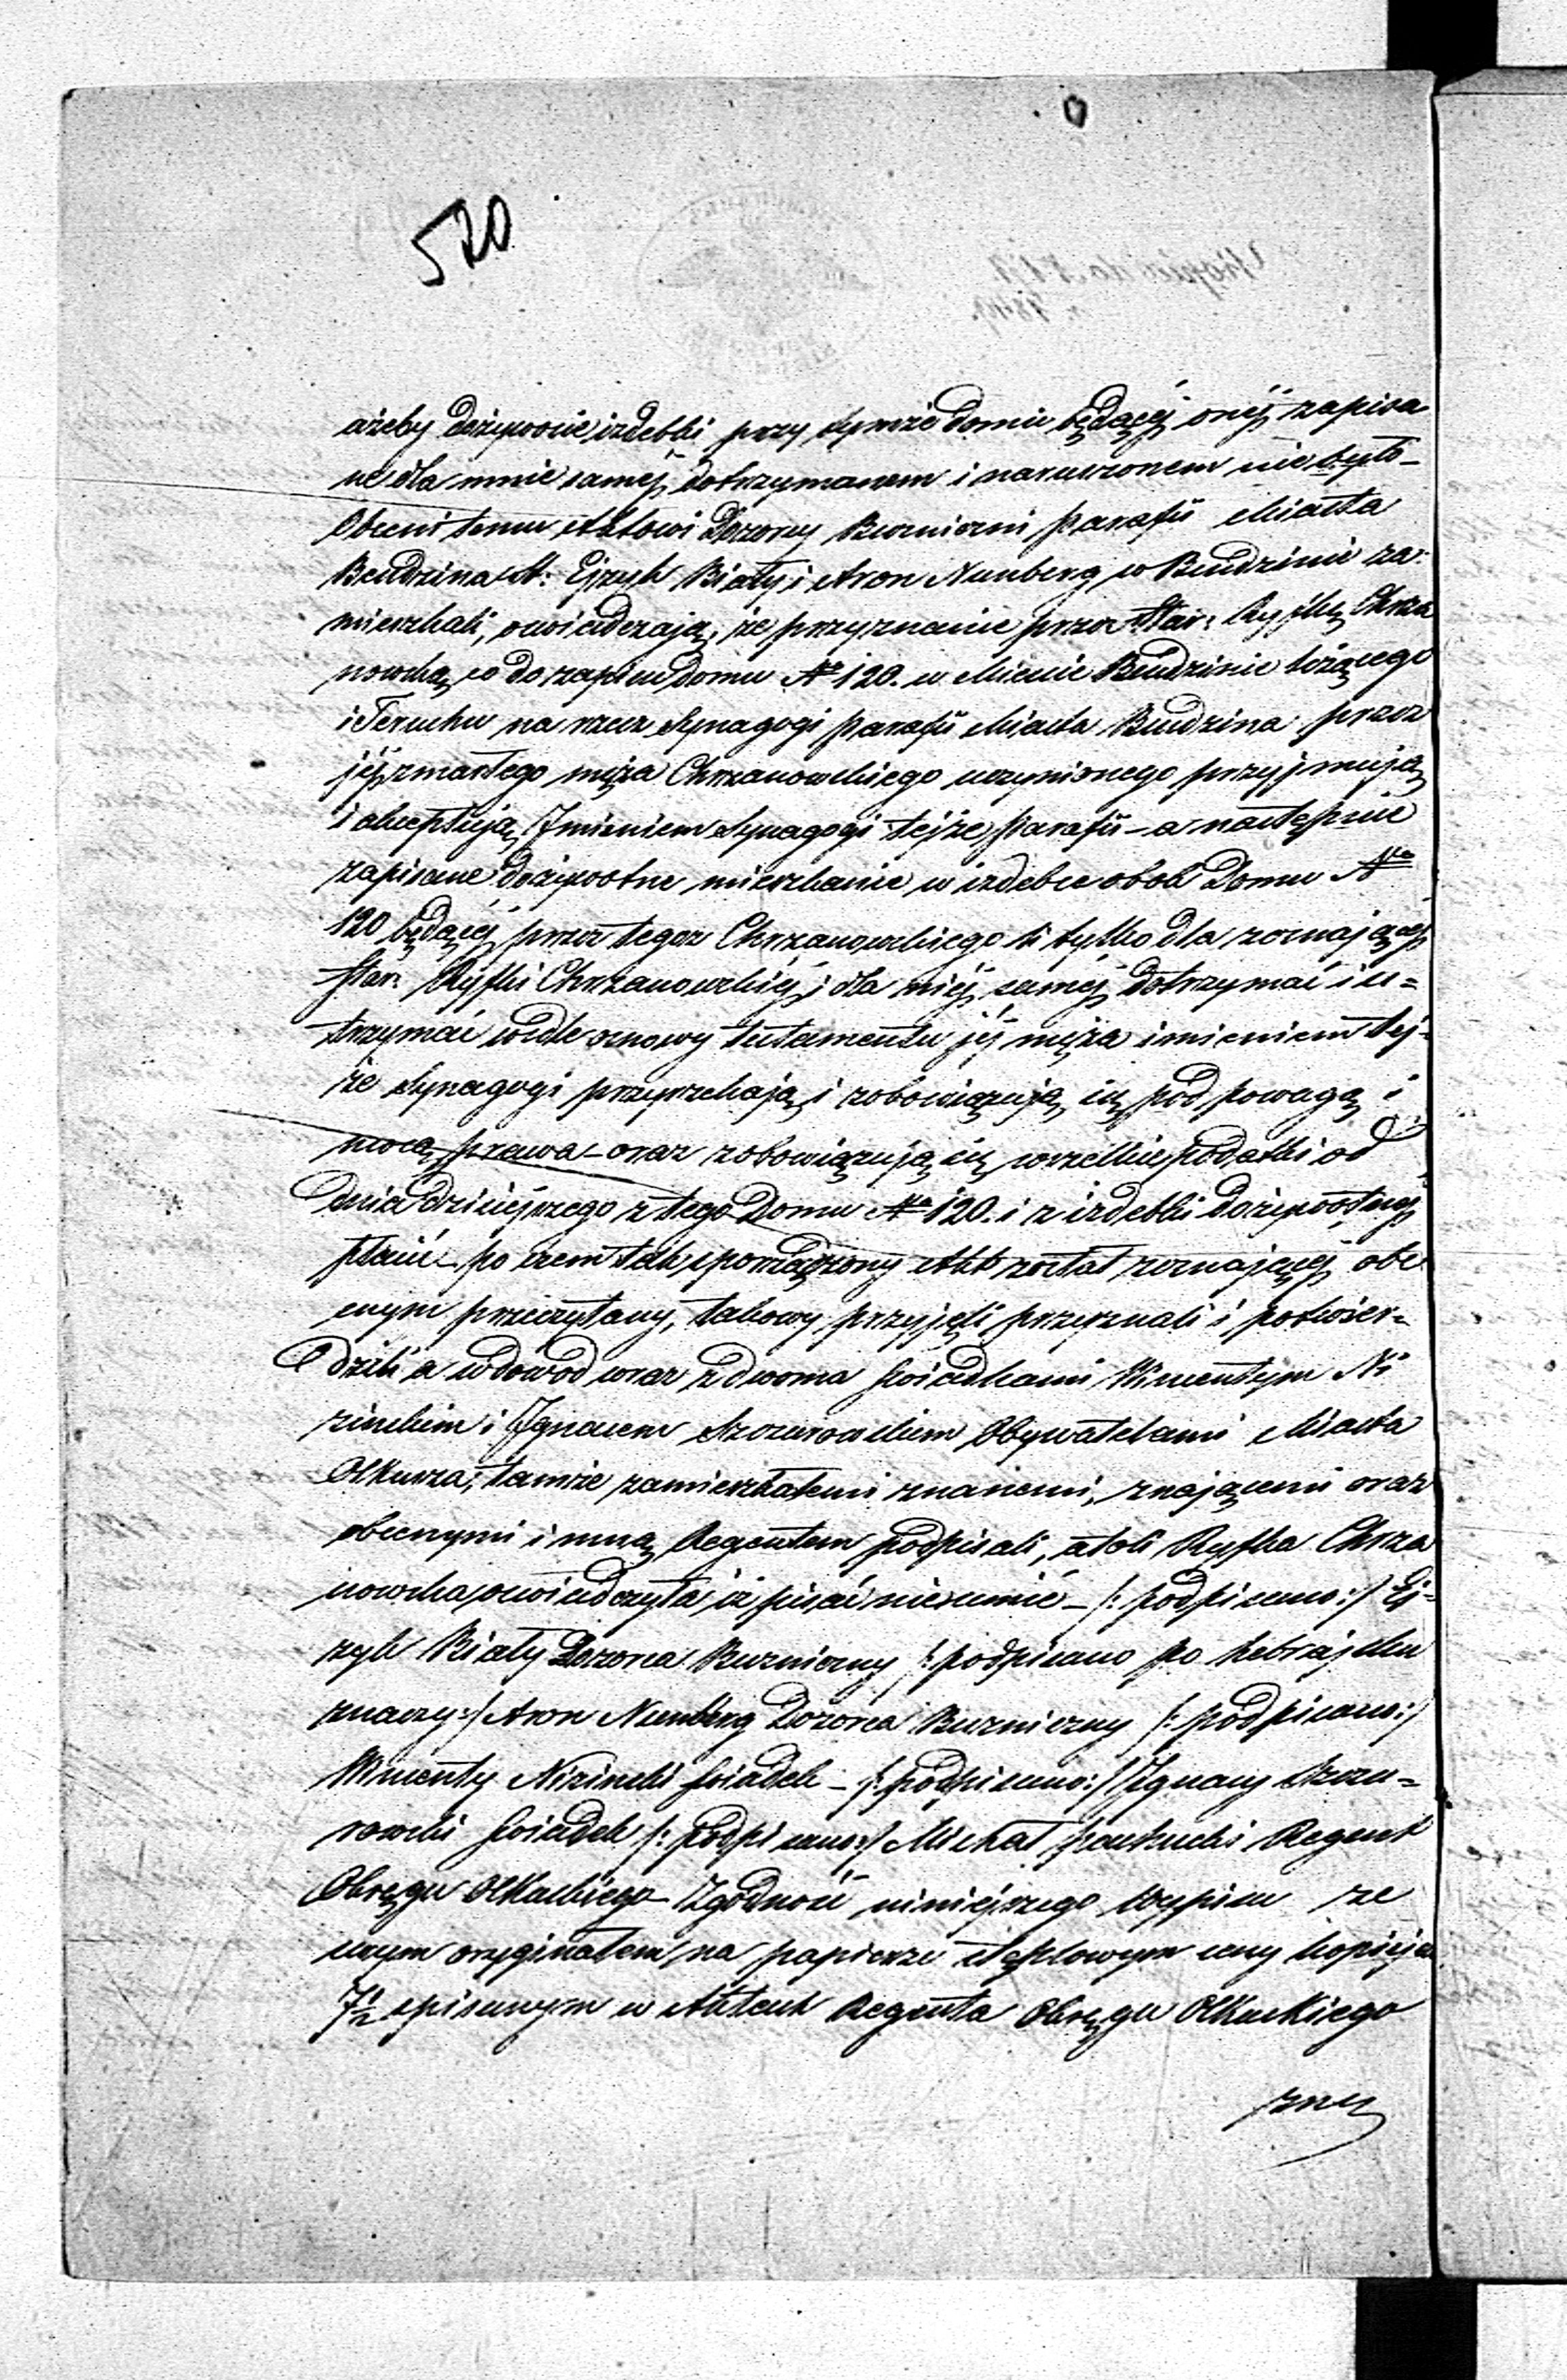 520
ażeby dożywocie izdebki przy tymże domie będącej onej zapisa
ne dla mnie samej dotrzymanem i naruszonem nie było –
Obecni temu Aktowi Dozorcy Bużniczni Parafii Miasta
Bendzina St: Ejzyk Biały i Aron Nunberg w Bendzinie za:
mieszkali, oświadczają, że przyznanie przez Star: Ryfkę Chrza
nowską co do zapisu Domu No 120. w Mieście Bendzinie leżącego
i na rzecz Synagogi Parafii Miasta Bendzina przez
jej zmarłego męża Chrzanowskiego uczynionego przyjmują
i akceptują Imieniem Synagogi tejże Parafii – a następnie
zapisane dożywotne mieszkanie w izdebce obok Domu No
120 będącej przez tegoż Chrzanowskiego li tylko dla zeznającej
Star: Ryfki Chrzanowskiej i dla niej samej dotrzymać i u=
trzymać wedle osnowy testamentu jej męża imieniem tej=
że Synagogi przyrzekają i zobowiązują się pod powagą i
mocą prawa – oraz zobowiązują się wszelkie podatki od
dnia dzisiejszego z tego Domu No 120. i z izdebki dożywotnej
płacić – po czem tak sporządzony Akt został zeznającej obe
cnym przeczytany, takowy przyjęli przyznali i potwier=
dzili a w dowód wraz z dwoma świadkami Wincentym Ni
zinskim i Ignacem Szczurowskim Obywatelami Miasta
Olkusza, tamże zamieszkałemi znanemi, znającemi oraz
obecnymi i mną Regentem podpisali, atoli Ryfka Chrza
nowska oświadczyła iż pisać nie umie – /: podpisano :/ Ej=
zyk Biały Dozorca Bużniczny /: podpisano po hebrajsku
znaczy :/ Aron Nunberg Dozorca Bużniczny /: podpisano :/
Wincenty Nizinski świadek – /: podpisano :/ Ignacy Szczu=
rowski świadek /: podpisano :/ Michał Regent
Okręgu Olkuskiego – Zgodność niniejszego wypisu ze
swym oryginałem na papierze stęplowym ceny kopiejek
7½ spisanym w Aktach Regenta Okręgu Olkuskiego
zna